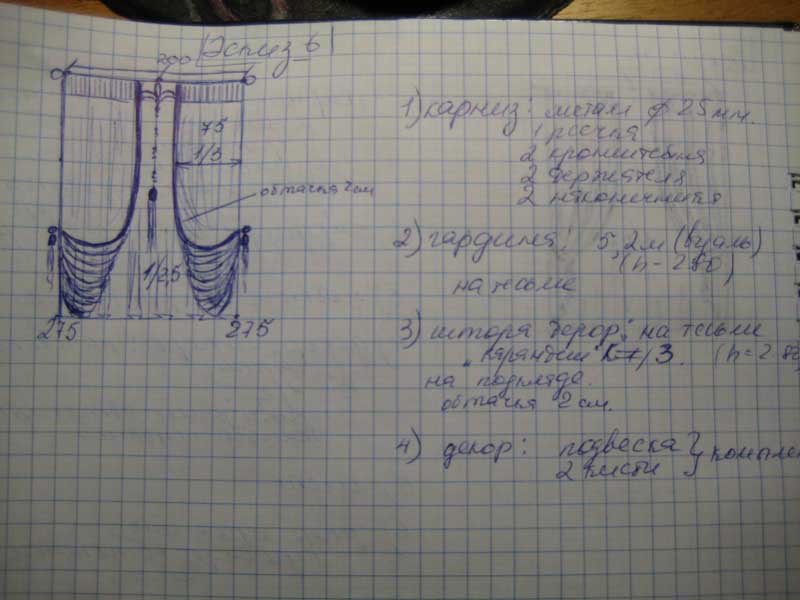 Эскиз 6
200
75
1/3
обтачка 2 см
1/2,5
275
275
1) карниз: металл ф 25 мм.
1 рядная
2 кронштейна
2 держателя
2 наконечника
2) гардина: 5,2 м (вуаль)
(h - 280)
на тесьме
3) штора декор: на тесьме
"карандаш" К-т/3. (h = 2.8
на подкладе.
обтачка 2 см.
4) декор: подвеска
2 кисти } компле